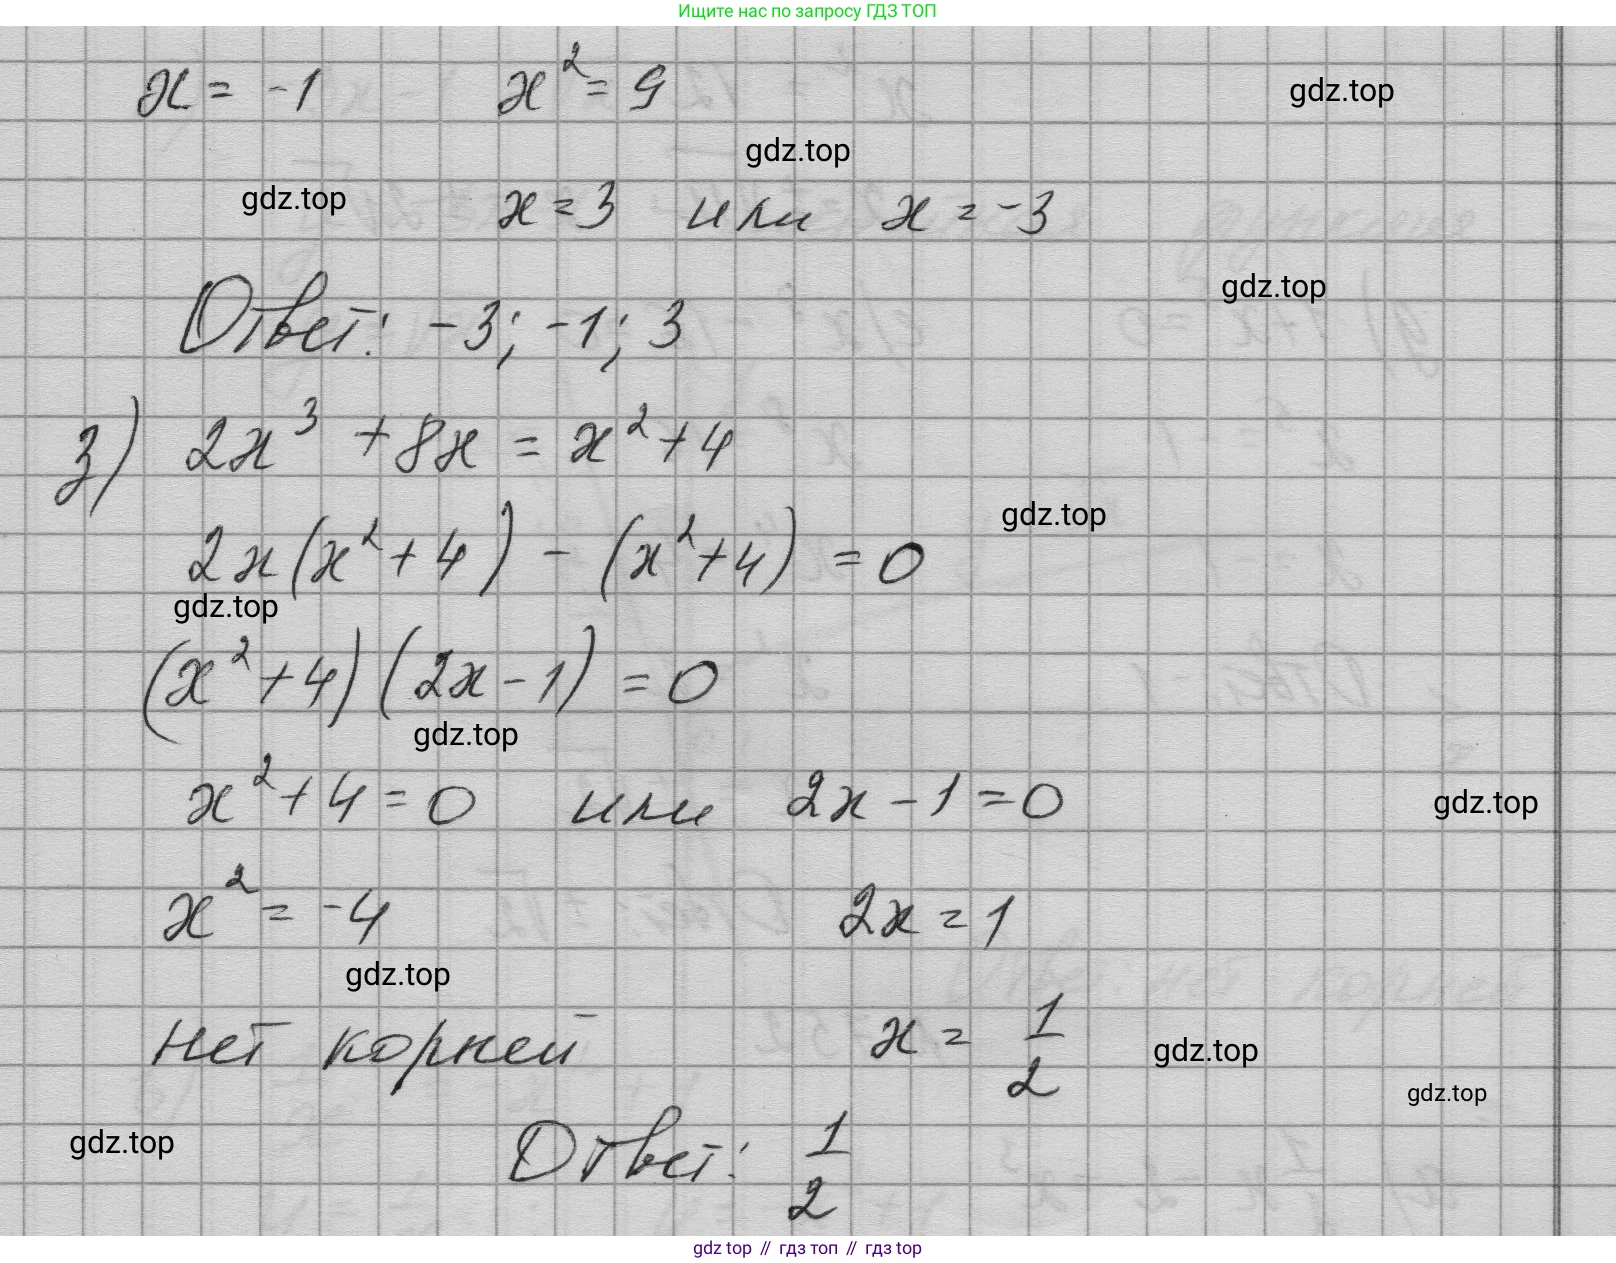 Ищите нас по запросу ГДЗ ТОП
x = -1 x² = 9
gdz.top
gdz.top
gdz.top
x = 3 или x = -3
gdz.top
Ответ: -3; -1; 3
з) 2x³ + 8x = x² + 4
gdz.top
2x(x² + 4) - (x² + 4) = 0
gdz.top
(x² + 4)(2x - 1) = 0
gdz.top
x² + 4 = 0 или 2x - 1 = 0
gdz.top
x² = -4 2x = 1
gdz.top
нет корней x = 1/2
gdz.top
gdz.top
gdz.top
Ответ: 1/2
gdz top // гдз топ // гдз top